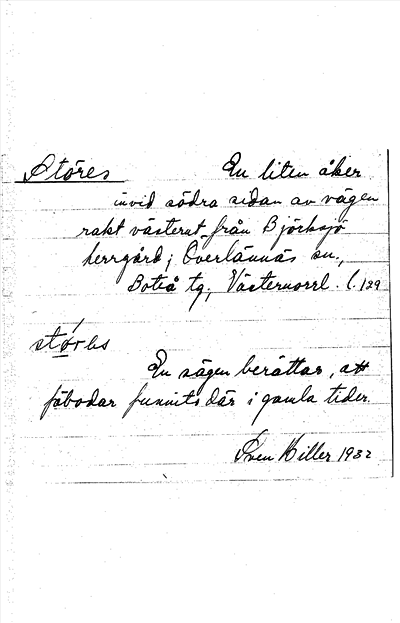 Störes En liten åker
invid södra sidan av vägen
rakt västerut från Björksjö
herrgård; Överlännäs sn.,
Boteå tg, Västernorrl. l. 129
En sägen berättar, att
fäbodar funnits där i gamla tider.
Sven Hiller 1932